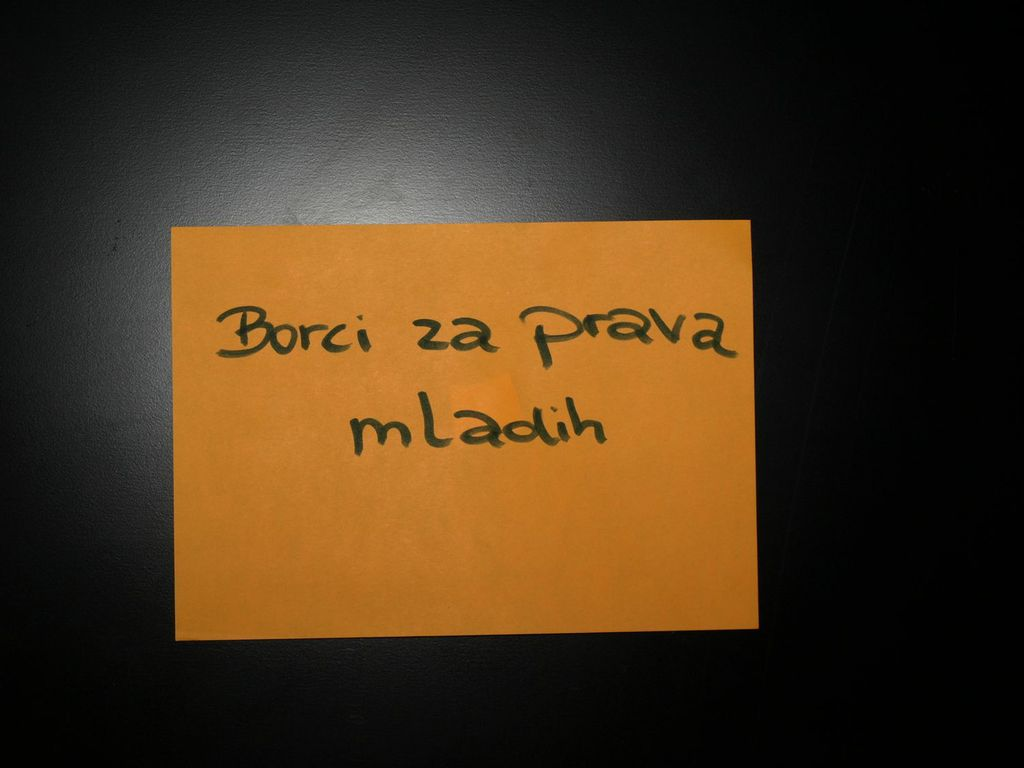 Borci za prava
mladih